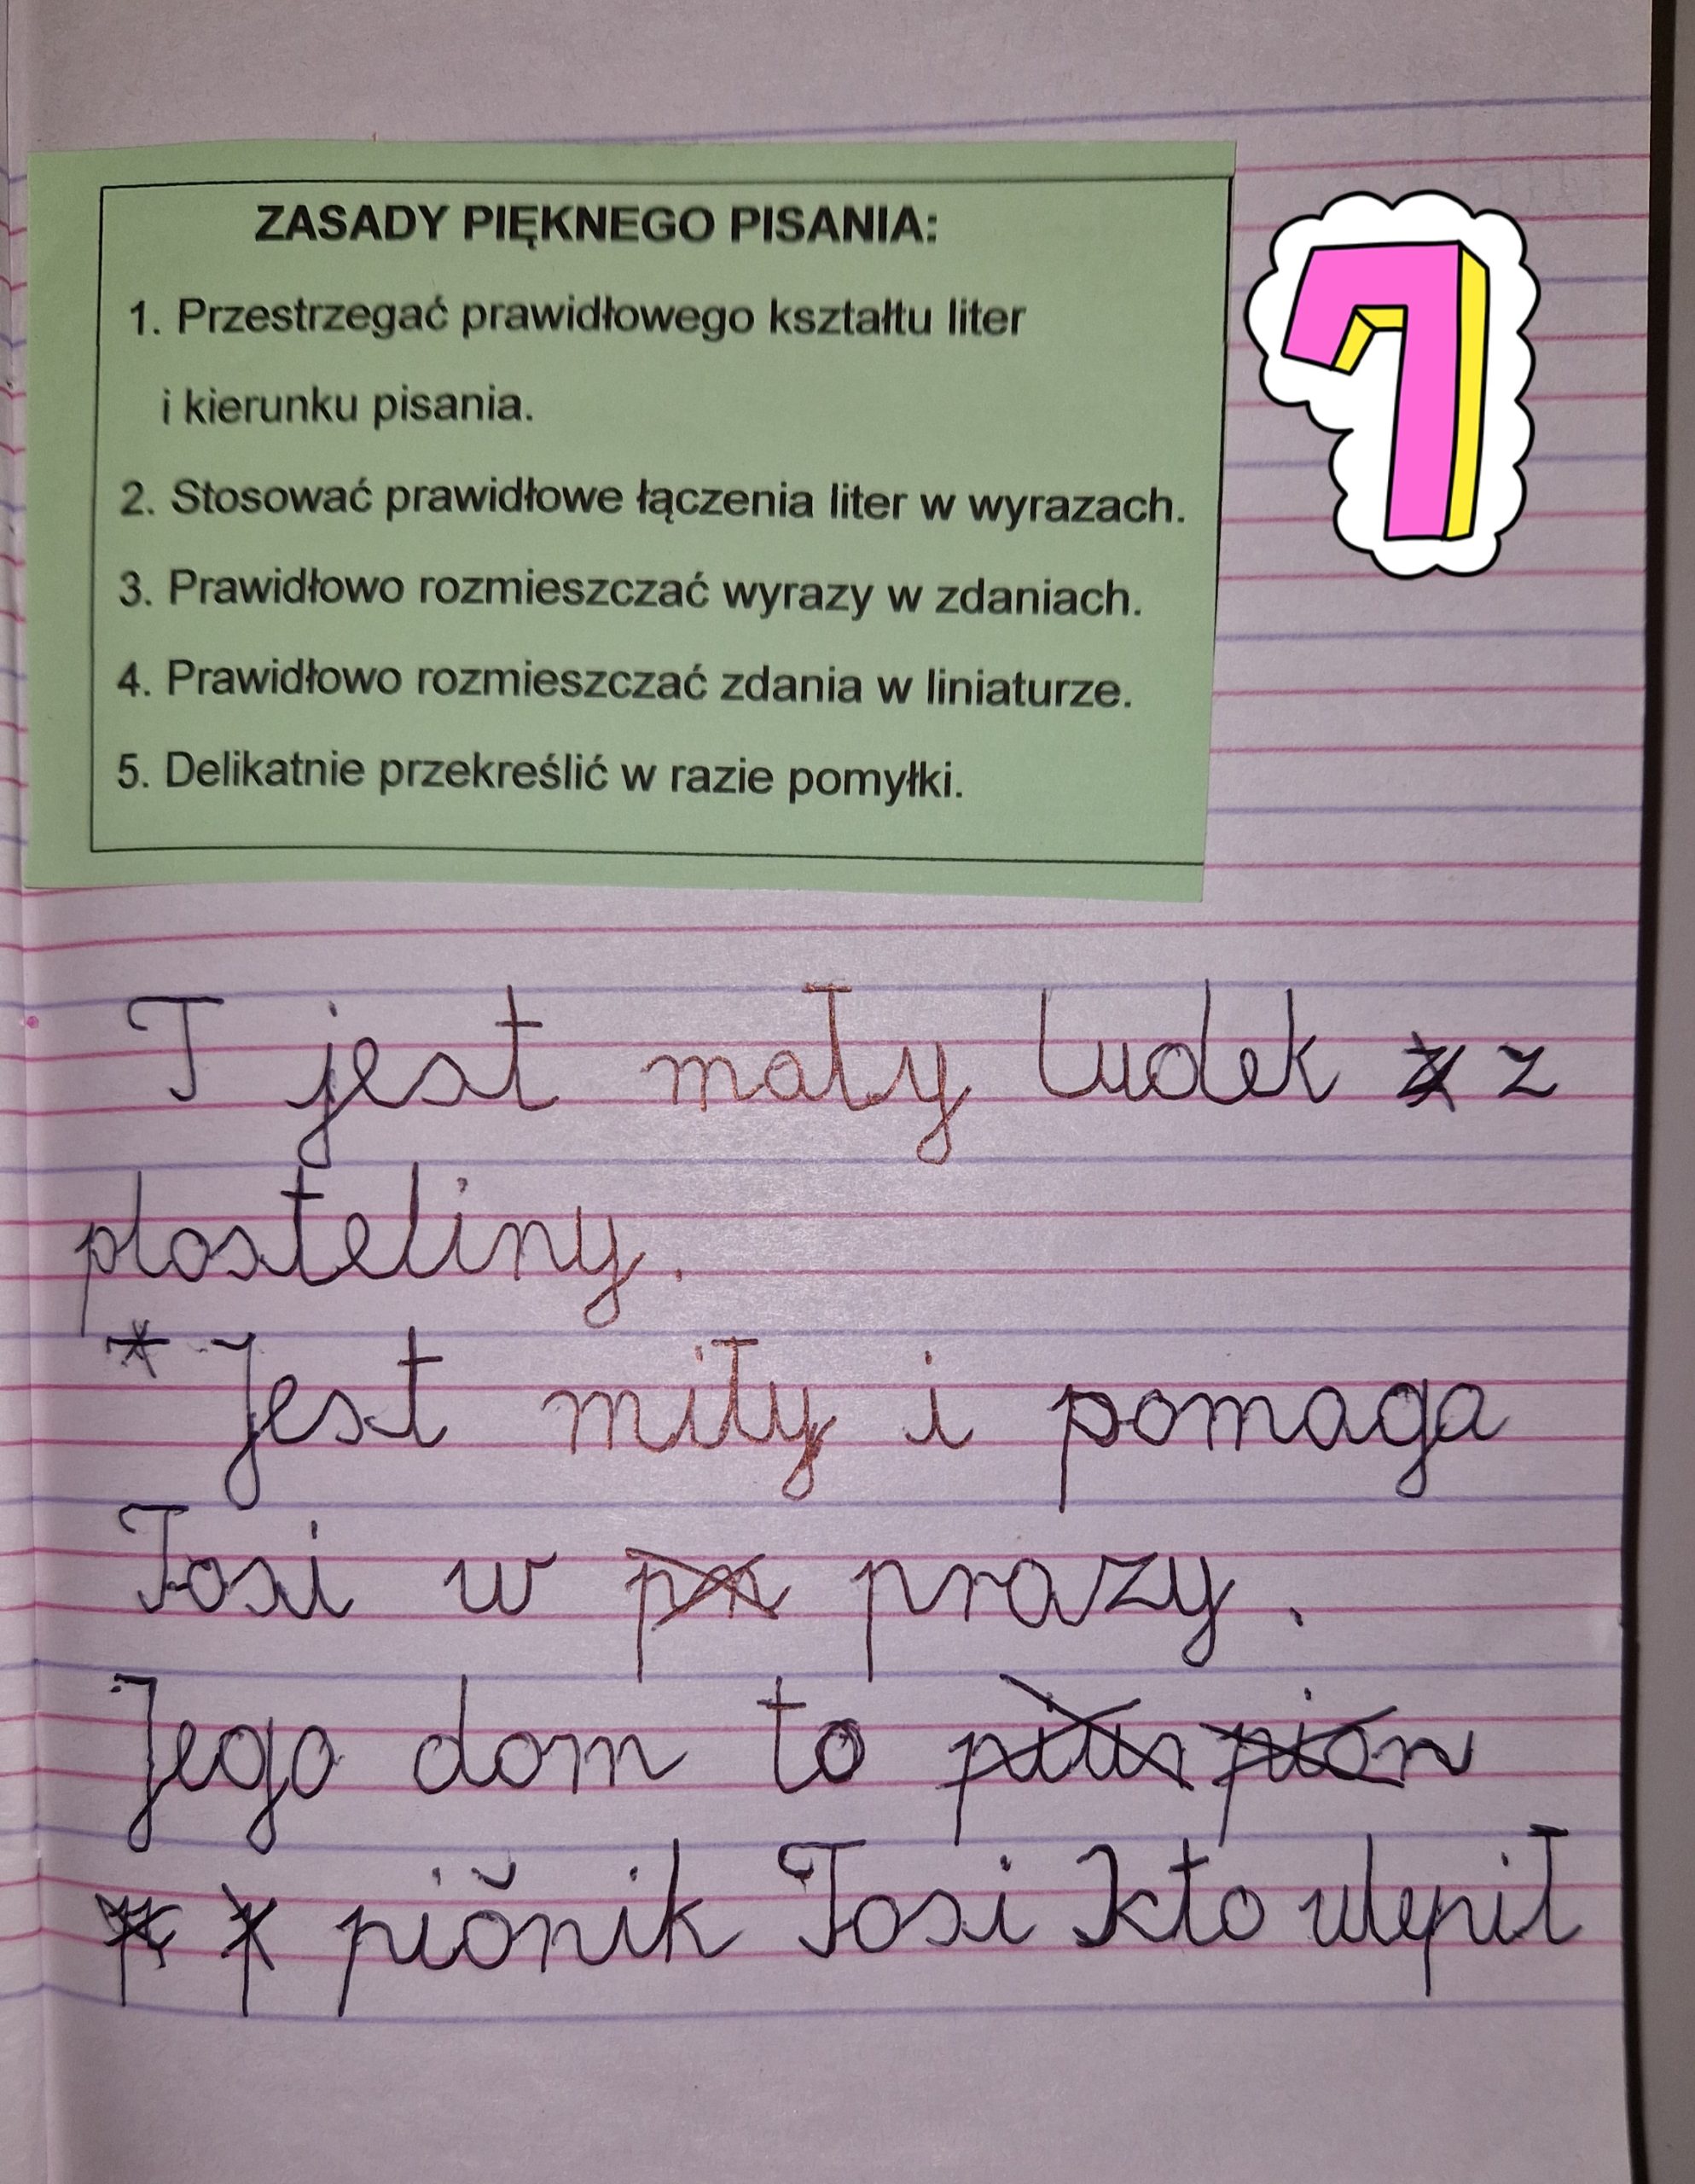 ZASADY PIĘKNEGO PISANIA:
1. Przestrzegać prawidłowego kształtu liter
i kierunku pisania.
2. Stosować prawidłowe łączenia liter w wyrazach.
3. Prawidłowo rozmieszczać wyrazy w zdaniach.
4. Prawidłowo rozmieszczać zdania w liniaturze.
5. Delikatnie przekreślić w razie pomyłki.
7
T jest mały ludek z
plasteliny.
* Jest miły i pomaga
Tosi w prazy.
Jego dom to
piónik Tosi kto ulepił